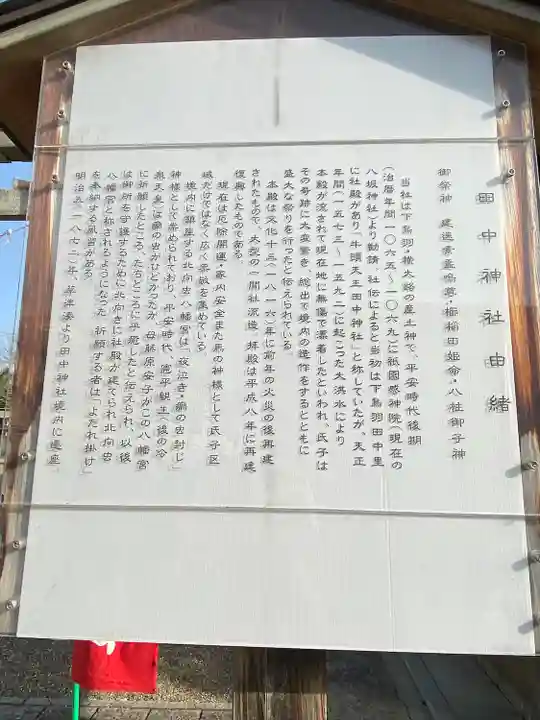 田中神社由緒
御祭神 建速素盞鳴尊・櫛稲田姫命・八柱御子神
当社は下鳥羽・横大路の産土神で、平安時代後期
(治暦年間一〇六五〜一〇六九)に祇園感神院(現在の
八坂神社)より勧請、社伝によると当初は下鳥羽田中里
に社殿があり「牛頭天王田中神社」と称していたが、天正
年間(一五七三〜一五九二)に起こった大洪水により
本殿が流されて現在地に無傷で漂着したといわれ、氏子は
その奇跡に大変驚き、総出で境内の造作をするとともに
盛大な祭りを行ったと伝えられている。
本殿は文化十三(一八一六)年に前年の火災の後再建
されたもので、大型の一間社流造、拝殿は平成八年に再建
復興したものである。
現在は厄除開運・家内安全また馬の神様として氏子区
域だけではなく広く崇敬を集めている。
境内に鎮座する北向虫八幡宮は「夜泣き・癇の虫封じ」の
神様として崇められており、平安時代、寛平親王(後の冷
泉天皇)は癇の虫がひどかったが、母藤原安子がこの八幡宮
に祈願したところ、たちどころに平癒したと伝えられ、以後
は御所を守護するために北向きに社殿が建てられ北向虫
八幡宮と称されるようになった。祈願する者は「よだれ掛け」
を奉納する風習がある。
明治五(一八七二)年、草津湊より田中神社境内に遷座。